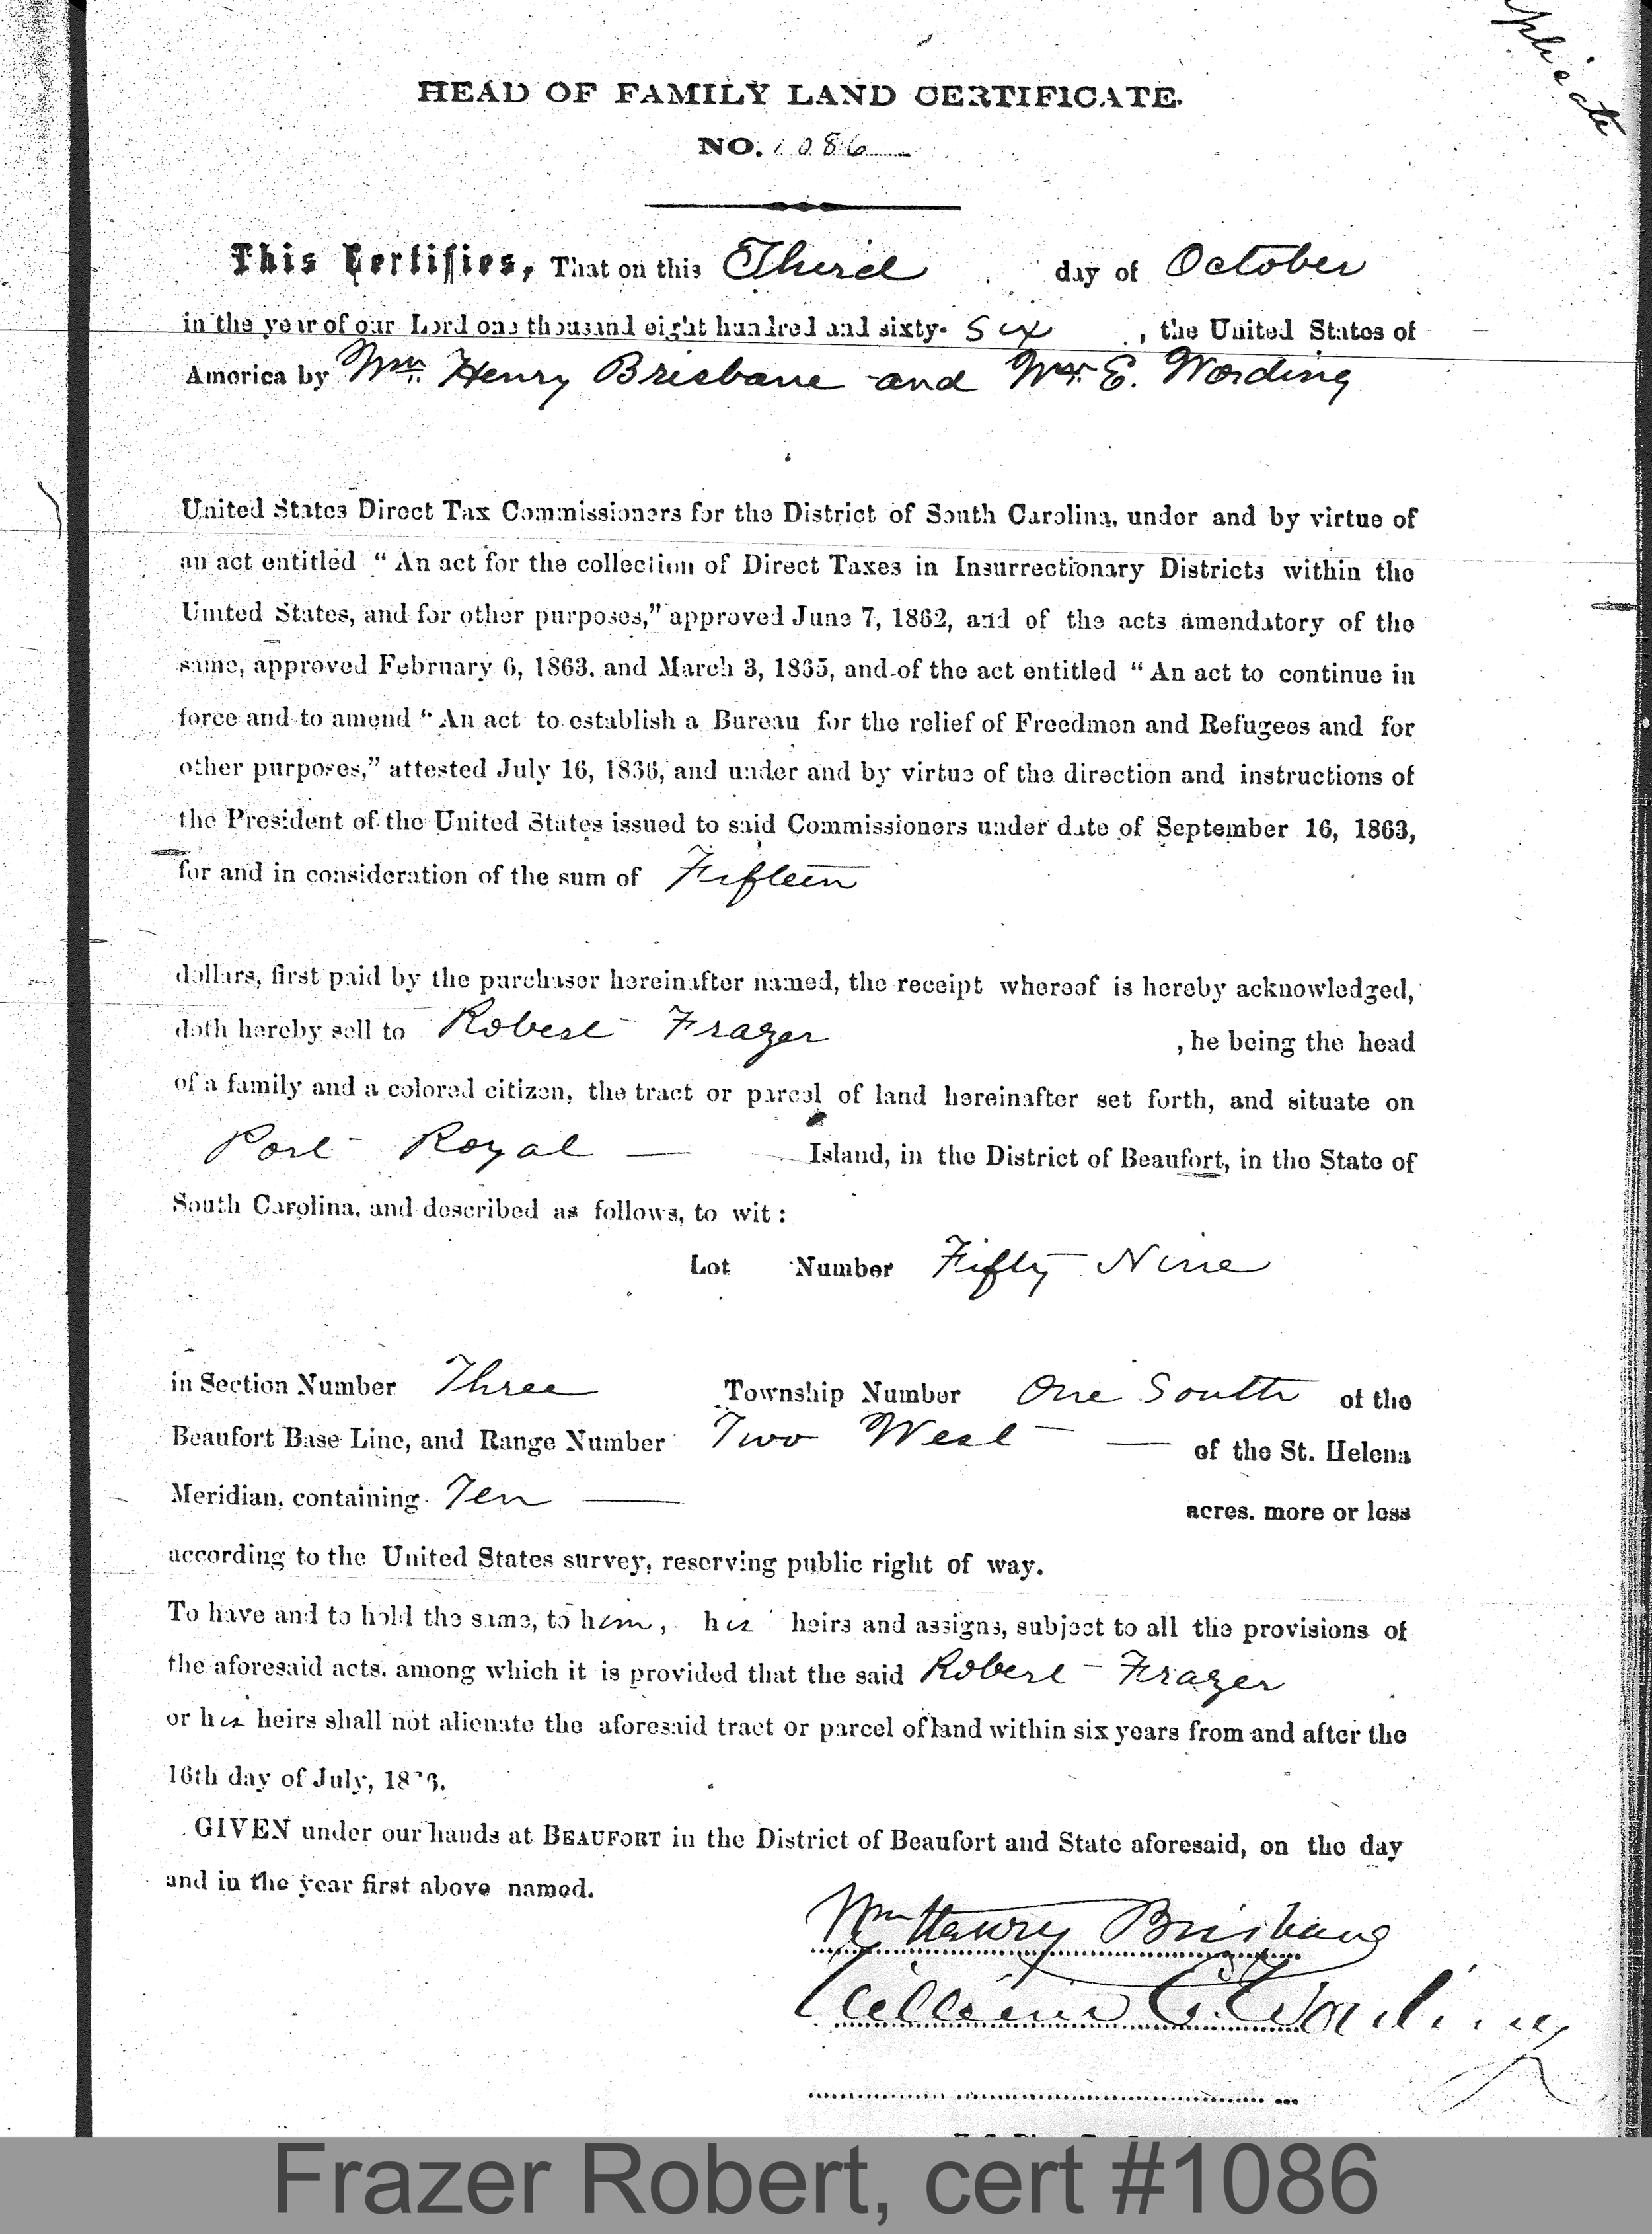 plicate
HEAD OF FAMILY LAND CERTIFICATE.
NO. 1086
This Certifies, That on this Third day of October
in the year of our Lord one thousand eight hundred and sixty- Six , the United States of
America by Wm. Henry Brisbane and Wm. E. Wording
United States Direct Tax Commissioners for the District of South Carolina, under and by virtue of
an act entitled “ An act for the collection of Direct Taxes in Insurrectionary Districts within the
United States, and for other purposes,” approved June 7, 1862, and of the acts amendatory of the
same, approved February 6, 1863. and March 3, 1865, and of the act entitled “ An act to continue in
force and to amend “ An act to establish a Bureau for the relief of Freedmen and Refugees and for
other purposes,” attested July 16, 1866, and under and by virtue of the direction and instructions of
the President of the United States issued to said Commissioners under date of September 16, 1863,
for and in consideration of the sum of Fifteen
dollars, first paid by the purchaser hereinafter named, the receipt whereof is hereby acknowledged,
doth hereby sell to Robert Frazer , he being the head
of a family and a colored citizen, the tract or parcel of land hereinafter set forth, and situate on
Port Royal — Island, in the District of Beaufort, in the State of
South Carolina, and described as follows, to wit :
Lot Number Fifty Nine
in Section Number Three Township Number One South of the
Beaufort Base Line, and Range Number Two West — of the St. Helena
Meridian, containing Ten — acres. more or less
according to the United States survey, reserving public right of way.
To have and to hold the same, to him, his heirs and assigns, subject to all the provisions of
the aforesaid acts. among which it is provided that the said Robert Frazer
or his heirs shall not alienate the aforesaid tract or parcel of land within six years from and after the
16th day of July, 1866.
GIVEN under our hands at BEAUFORT in the District of Beaufort and State aforesaid, on the day
and in the year first above named.
Wm Henry Brisbane
William E. Wording
Frazer Robert, cert #1086